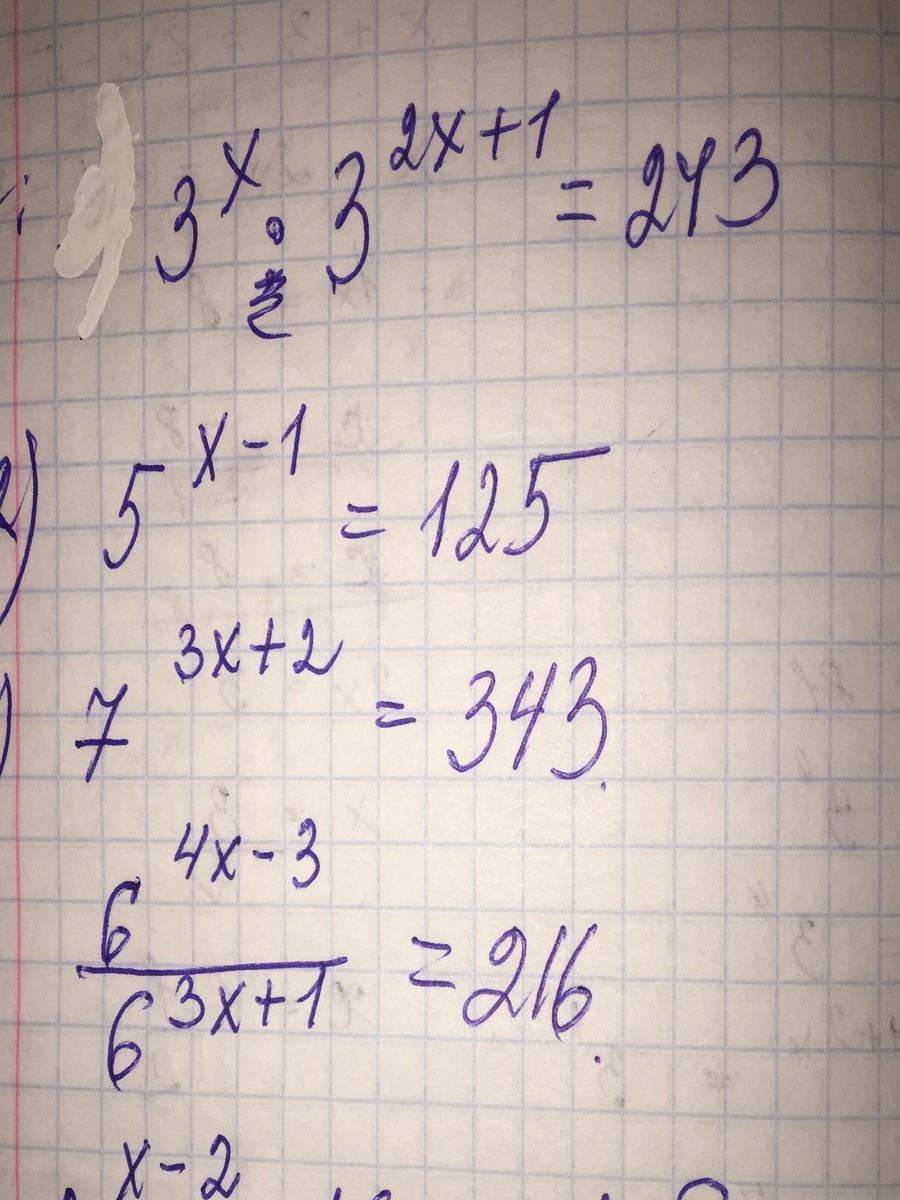 3^x · 3^{2x+1} = 243
2) 5^{x-1} = 125
) 7^{3x+2} = 343.
6^{4x-3}
/ 6^{3x+1} = 216.
x-2